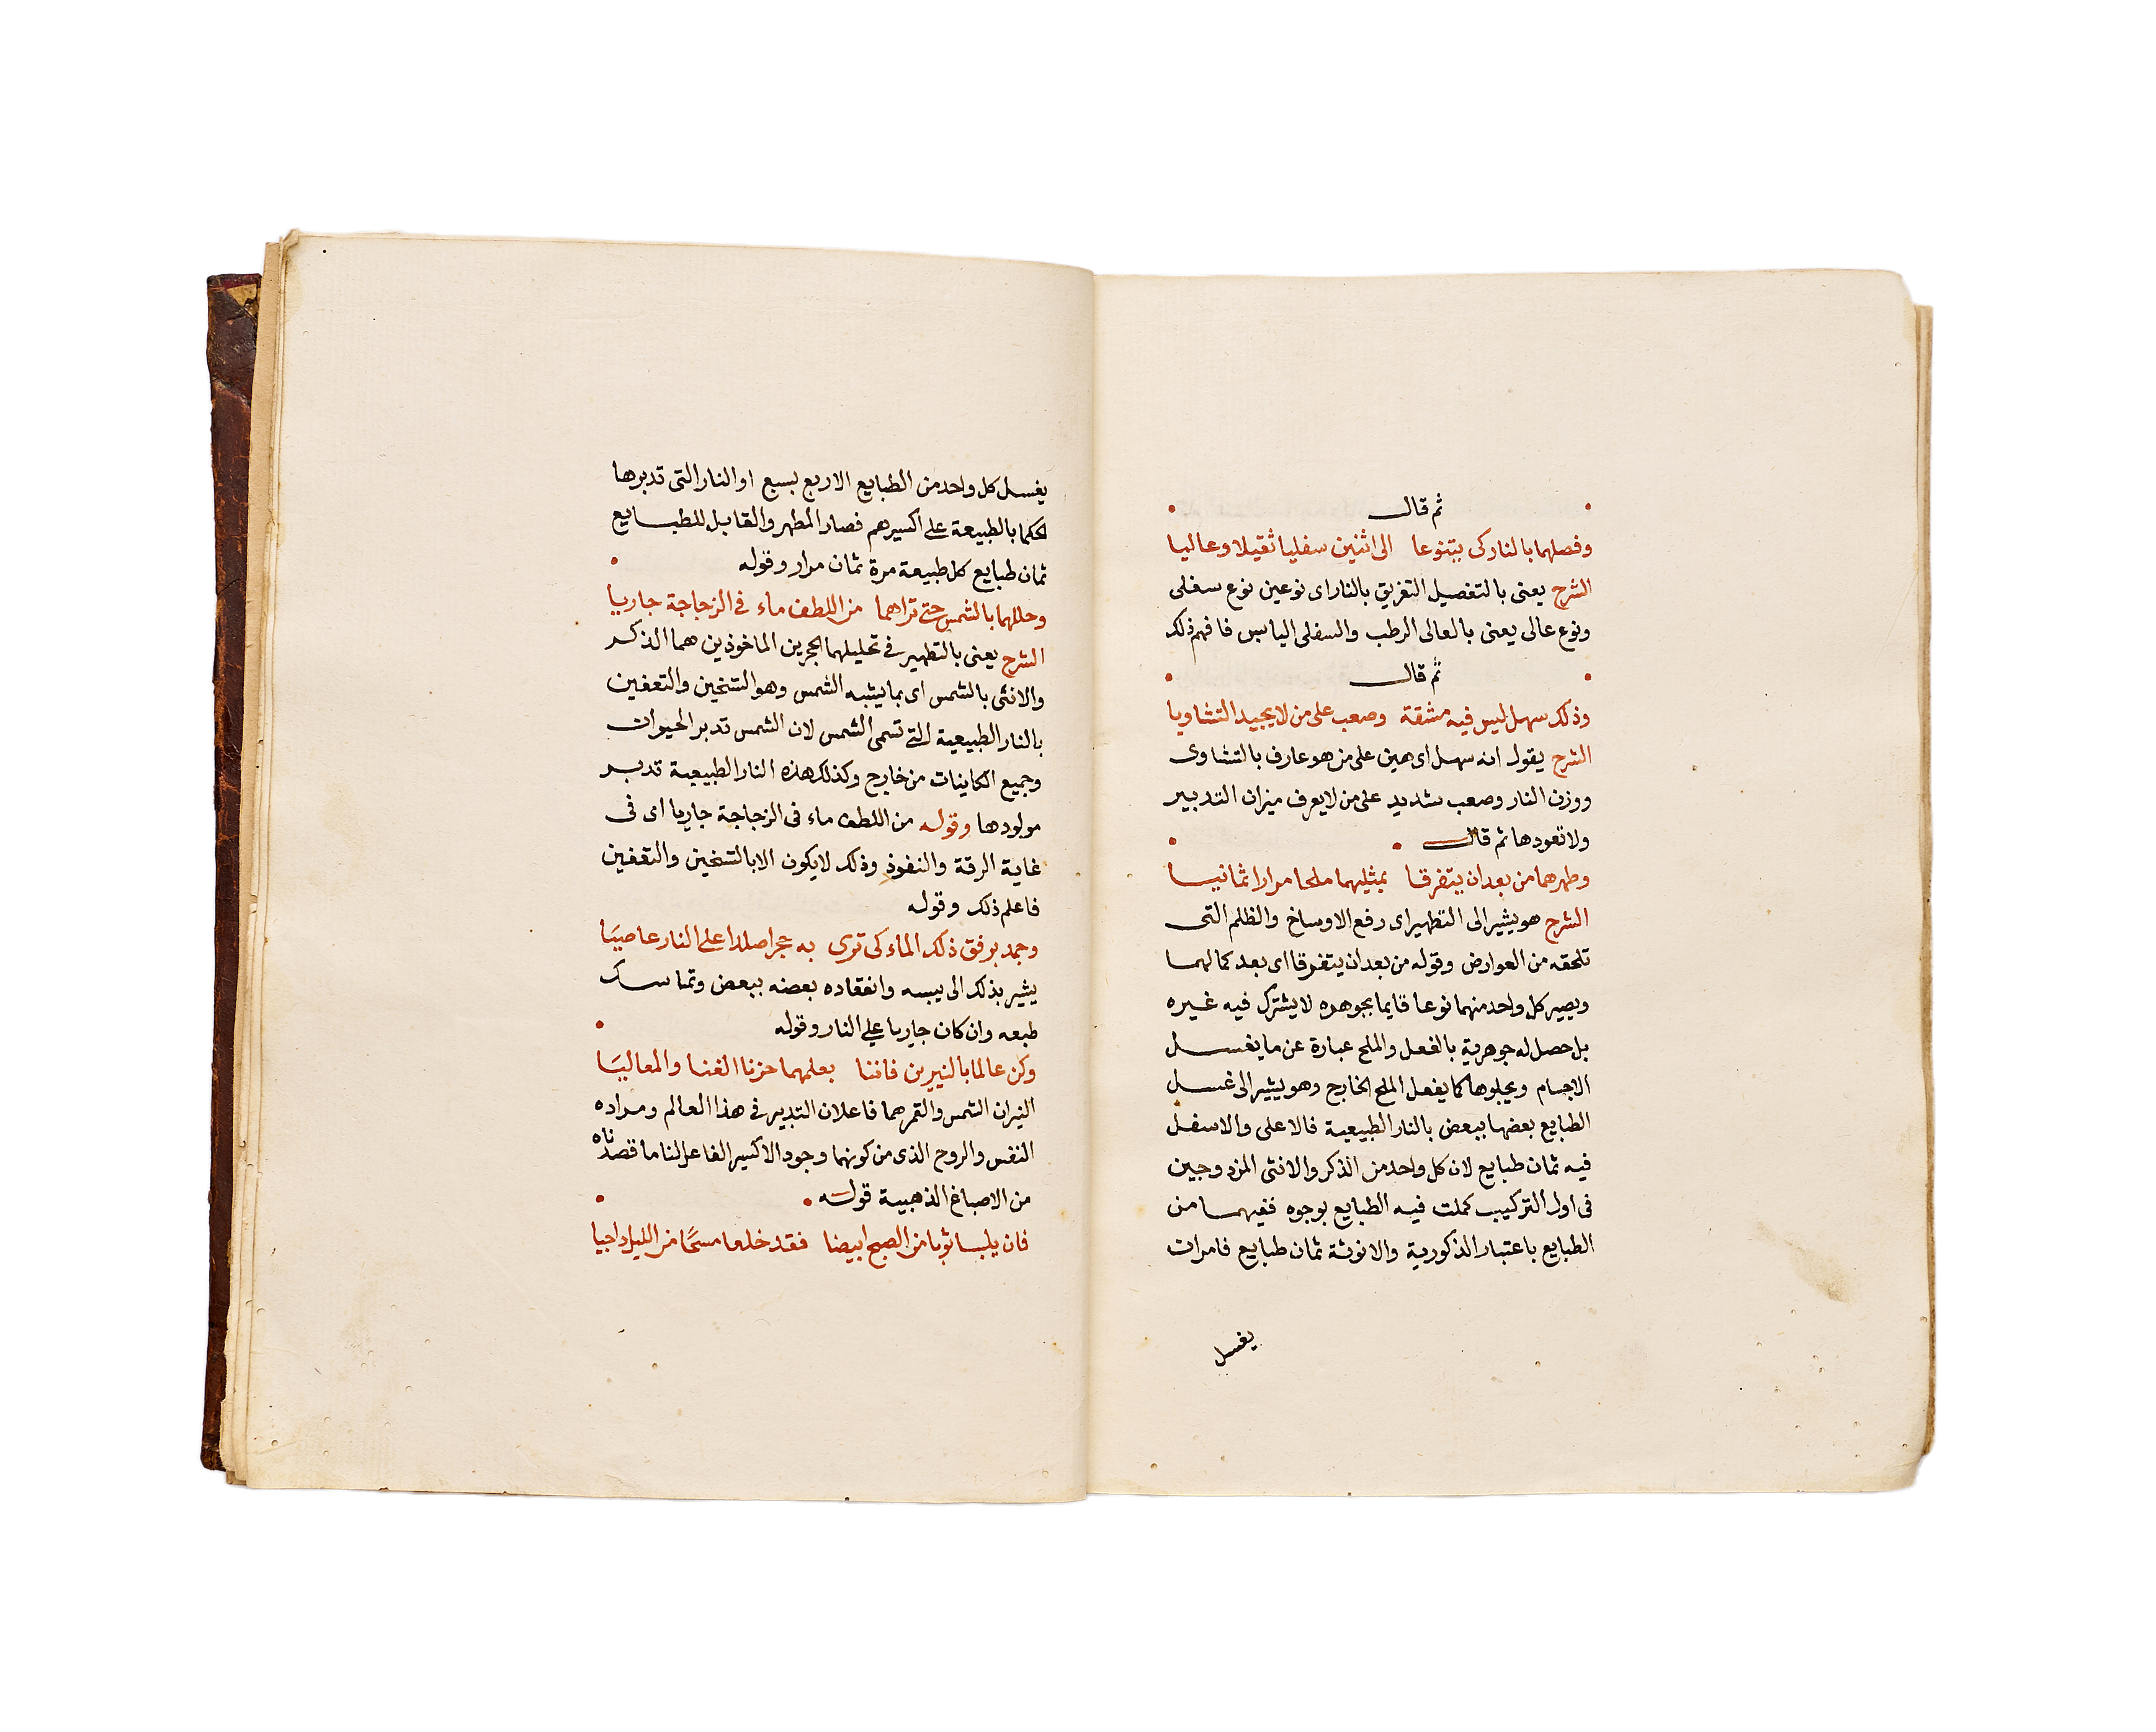 ثم قال
وفصلهما بالنار كى يتنوعا الى اثنين سفليا ثقيلا وعاليا
الشرح يعنى بالتفصيل التفريق بالنار اى نوعين نوع سفلى
ونوع عالى يعنى بالعالى الرطب والسفلى اليابس فافهم ذلك
ثم قال
وذلك سهل ليس فيه مشقة وصعب على من لا يجيد التشاويا
الشرح يقول انه سهل اى هين على من هو عارف بالتشاوى
ووزن النار وصعب شديد على من لا يعرف ميزان التدبير
ولا تعودها ثم قال
وطهرهما من بعد ان يتفرقا بمثليهما ملحا مرارا ثمانيا
الشرح هو يشير الى التطهير اى رفع الاوساخ والظلم التى
تلحقه من العوارض وقوله من بعد ان يتفرقا اى بعد كمالهما
ويصير كل واحد منهما نوعا قايما بجوهره لا يشترك فيه غيره
بل حصل له جوهرية بالفعل والملح عبارة عن ما يغسل
الاجسام ويجلوها كما يفعل الملح الخارج وهو يشير الى غسل
الطبايع بعضها ببعض بالنار الطبيعية فالاعلى والاسفل
فيه ثمان طبايع لان كل واحد من الذكر والانثى المزدوجين
فى اول التركيب كملت فيه الطبايع بوجوه ففيهما من
الطبايع باعتبار الذكورية والانوثة ثمان طبايع فامرات
يغسل
يغسل كل واحد من الطبايع الاربع بسبع او النار التى تدبرها
الحكما بالطبيعة على اكسيرهم فصار المطهر والقابل للطبايع
ثمان طبايع كل طبيعة مرة ثمان مرار وقوله
وحللهما بالشمس حتى تراهما من اللطف ماء فى الزجاجة جاريا
الشرح يعنى بالتطهير فى تحليلهما الحجرين الماخوذين هما الذكر
والانثى بالشمس اى بما يشبه الشمس وهو التسخين والتعفين
بالنار الطبيعية التى تسمى الشمس لان الشمس تدبر الحيوان
وجميع الكاينات من خارج وكذلك هذه النار الطبيعية تدبر
مولودها وقوله من اللطف ماء فى الزجاجة جاريا اى فى
غاية الرقة والنفوذ وذلك لا يكون الا بالتسخين والتعفين
فاعلم ذلك وقوله
وجمد برفق ذلك الماء كى ترى به حجرا صلدا على النار عاصيا
يشير بذلك الى يبسه وانعقاده بعضه ببعض وتماسك
طبعه وان كان جاريا على النار وقوله
وكن عالما بالنيرين فاننا بعلمهما حزنا الغنا والمعاليا
النيران الشمس والقمر هما فاعلان التدبير فى هذا العالم ومراده
النفس والروح الذى من كونهما وجود الاكسير الفاعل لنا ما قصدناه
من الاصباغ الذهبية قوله
فان يلبسا ثوبا من الصبح ابيضا فقد خلعا مسحًا من الليل داجيا